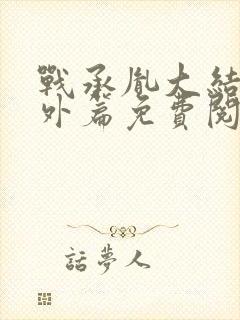 戰承胤大結
外篇免費閱
話夢人